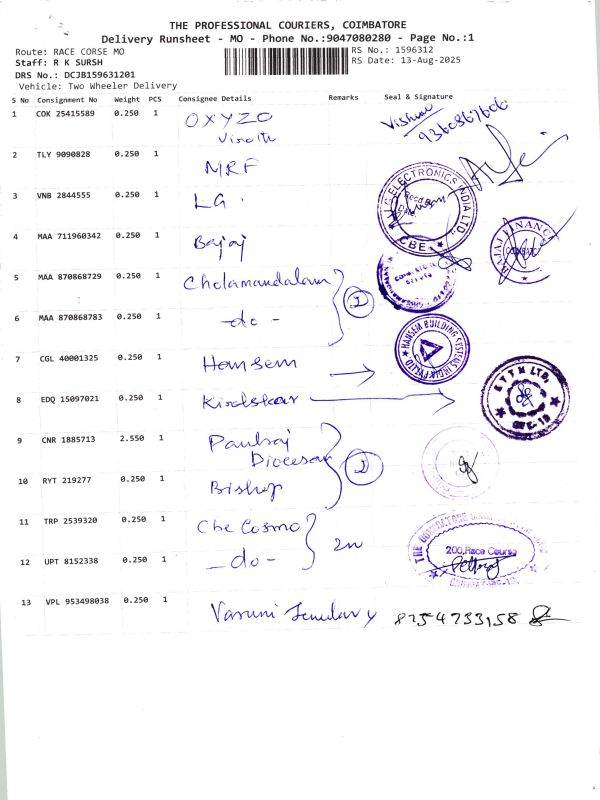 THE PROFESSIONAL COURIERS, COIMBATORE
Delivery Runsheet - MO - Phone No.:9047080280 - Page No.:1
Route: RACE CORSE MO
RS No.: 1596312
Staff: R K SURSH
RS Date: 13-Aug-2025
DRS No.: DCJB159631201
Vehicle: Two Wheeler Delivery
S No Consignment No Weight PCS Consignee Details Remarks Seal & Signature
1 COK 25415589 0.250 1 OXYZO Vishnu
9360867606
2 TLY 9090828 0.250 1 MRF
3 VNB 2844555 0.250 1 LG
LG ELECTRONICS INDIA LTD.
CBE
4 MAA 711960342 0.250 1 Bajaj
BAJAJ FINANCE
5 MAA 870868729 0.250 1 Cholamandalam
6 MAA 870868783 0.250 1 -do-
7 CGL 40001325 0.250 1 Hansem
HANSEM BUILDING SYSTEMS INDIA PVT LTD
8 EDQ 15097021 0.250 1 Kirolskar
9 CNR 1885713 2.550 1 Paulraj
Diocesan
2
10 RYT 219277 0.250 1 Bishop
11 TRP 2539320 0.250 1 Cbe Cosmo
200, Race Course
12 UPT 8152338 0.250 1 -do-
13 VPL 953498038 0.250 1 Varuni 8754733158